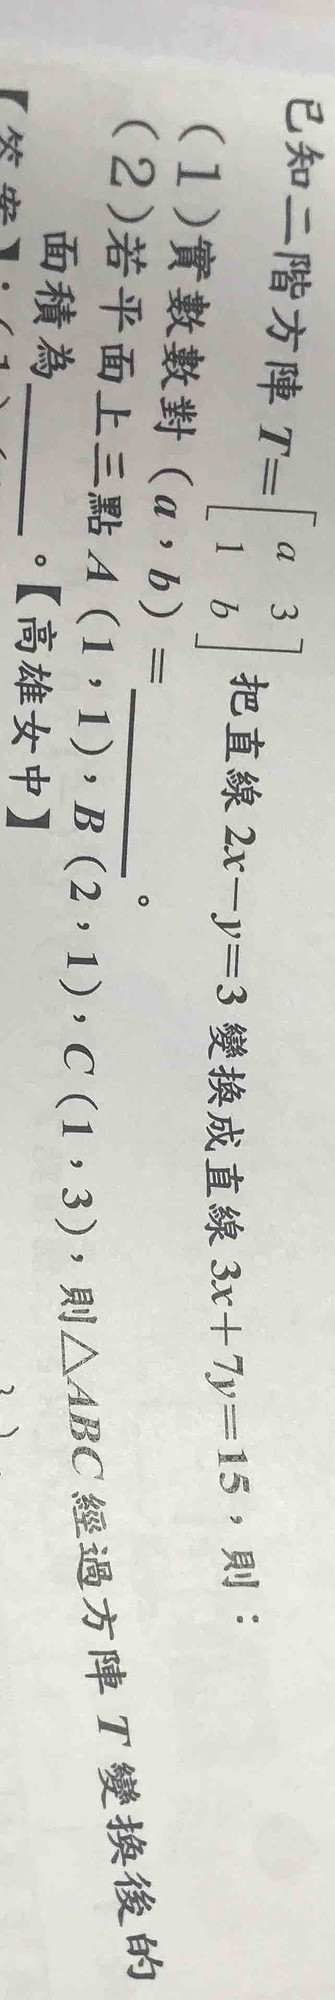 已知二階方陣 T=[a 3; 1 b] 把直線 2x−y=3 變換成直線 3x+7y=15,則:
(1)實數數對(a,b)=______。
(2)若平面上三點 A(1,1),B(2,1),C(1,3),則△ABC 經過方陣 T 變換後的
面積為______。【高雄女中】